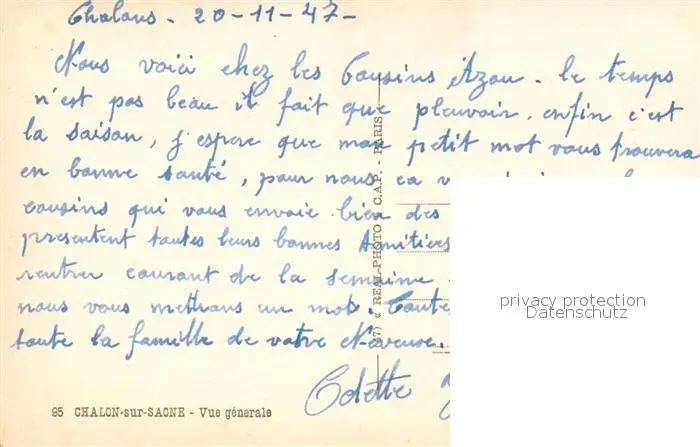 Chalons - 20-11-47-
Nous voici chez les Cousins Azou - le temps
n'est pas beau il fait que pleuvoir. enfin c'est
la saison, j'espere que mon petit mot vous trouvera
en bonne santé, pour nous ca
cousins qui vous envoie bien des
presentent toutes leurs bonnes Amitiées
rentrer courant de la semaine
nous vous mettrons un mot. Toute
toute la famille de votre Neveuse.
Odette
95 CHALON-sur-SAONE - Vue générale
(97) « REAL-PHOTO » C.A.P. - PARIS
privacy protection
Datenschutz